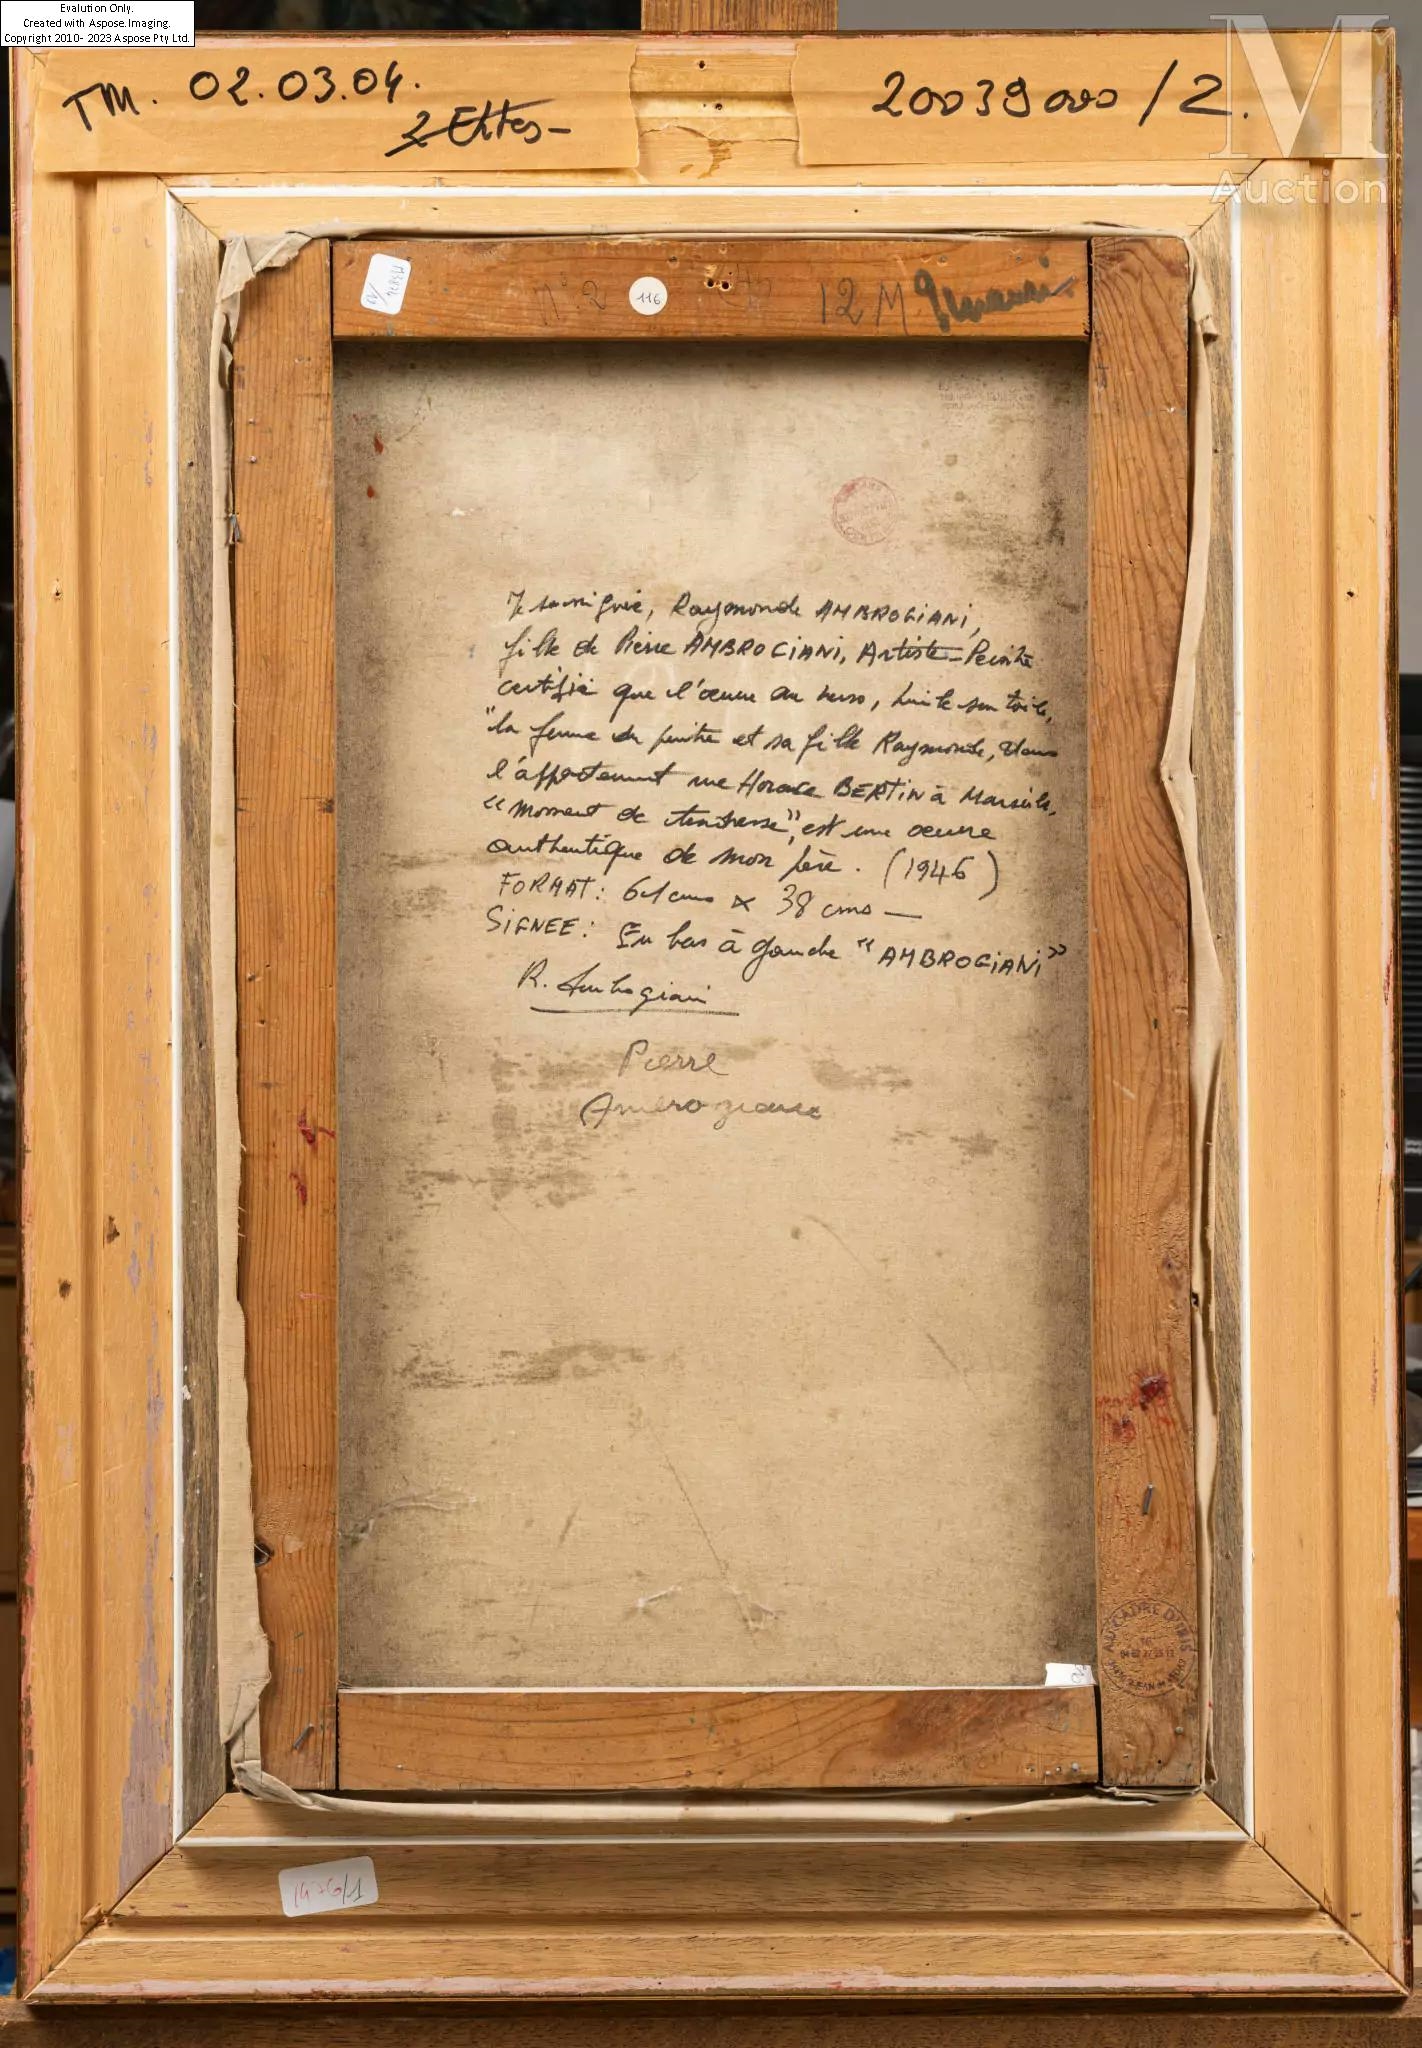 Evalution Only.
Created with Aspose.Imaging.
Copyright 2010- 2023 Aspose Pty Ltd.
M
Auction
TM. 02.03.04.
20039000/2.
N° 2
116
12 M
Je soussignée, Raymonde AMBROGIANI,
fille de Pierre AMBROGIANI, Artiste-Peintre
certifie que l'œuvre au verso, huile sur toile,
"la femme du peintre et sa fille Raymonde, dans
l'appartement rue Horace BERTIN à Marseille,
"moment de tendresse", est une œuvre
authentique de mon père. (1946)
FORMAT: 61 cms x 38 cms —
SIGNEE: En bas à gauche "AMBROGIANI"
R. Ambrogiani
Pierre
Ambrogiani
AU CADRE D'